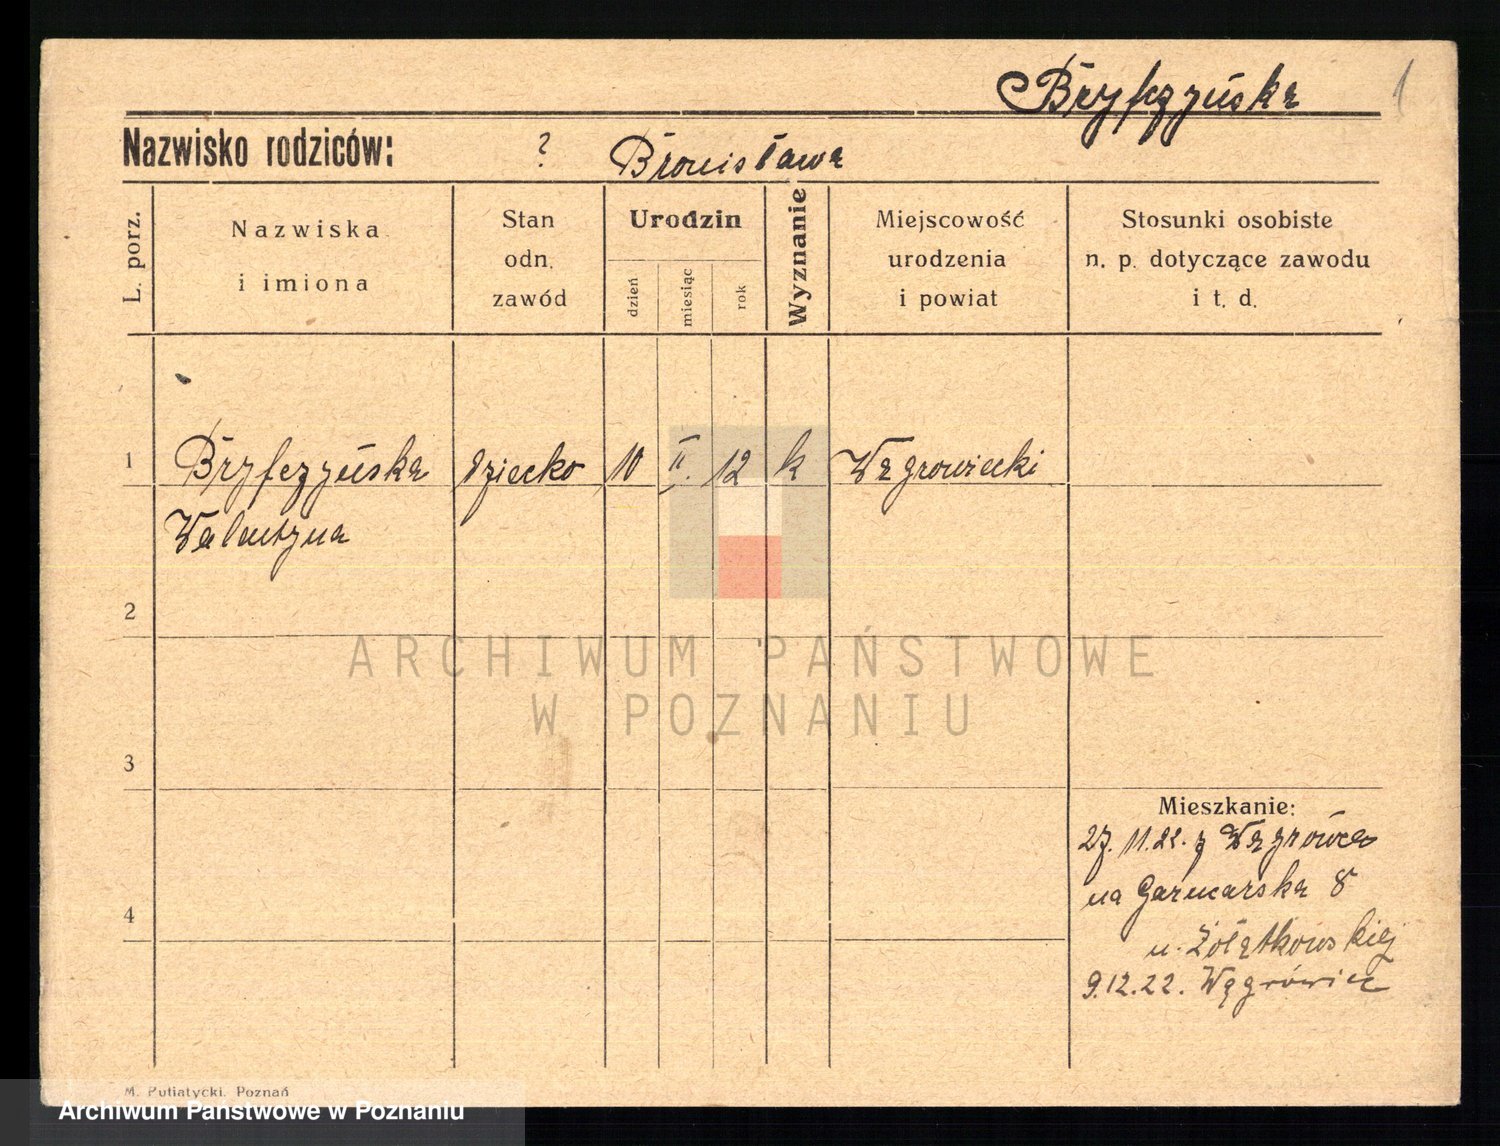 Bryfczyńska
1
Nazwisko rodziców: ? Bronisława
L. porz.
Nazwiska
i imiona
Stan
odn.
zawód
Urodzin
dzień
miesiąc
rok
Wyznanie
Miejscowość
urodzenia
i powiat
Stosunki osobiste
n. p. dotyczące zawodu
i t. d.
1 Bryfczyńska dziecko 10 II. 12 k Wągrowiecki
Walentyna
2
ARCHIWUM PAŃSTWOWE
W POZNANIU
3
Mieszkanie:
27. 11. 22. z Wągrówca
na Garncarska 8
4
u. Żołątkowskiej
9.12.22. Wągrówiec
M. Putiatycki. Poznań
Archiwum Państwowe w Poznaniu